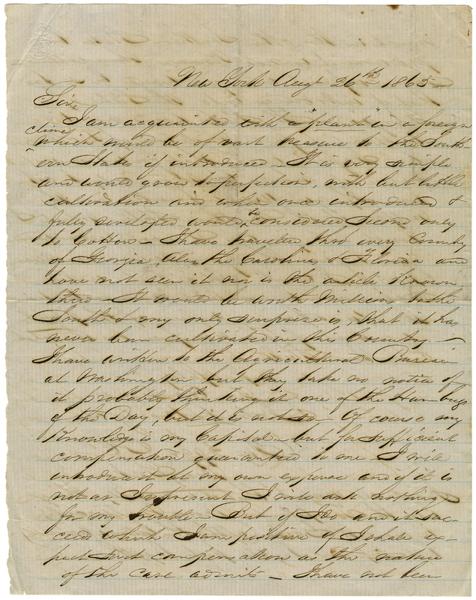 New York Augt 26th 1865
Sir
I am acquainted with a "plant" in a foreign
clime which would be of vast treasure to the South
ern States if introduced. It is very simple
and would grow to perfection, with but little
cultivation and when once introduced &
fully developed would be considered second only
to Cotton - I have travelled thro every County
of Georgia, also the Carolinas & Florida and
have not seen it nor is the article known
there - It would be worth Millions to the
South & my only surprise is, that it has
never been cultivated in this Country -
I have written to the Agricultural Bureau
at Washington but they take no notice of
it probably thinking it one of the Humbugs
of the Day, but it is not so. Of course my
Knowledge is my Capital - but for sufficient
compensation guaranteed to me I will
introduce it at my own expense and if it is
not as I represent I will ask nothing
for my trouble. But if I do and it suc
ceed which I am positive of I shall ex
pect such compensation as the nature
of the case admits - I have not been